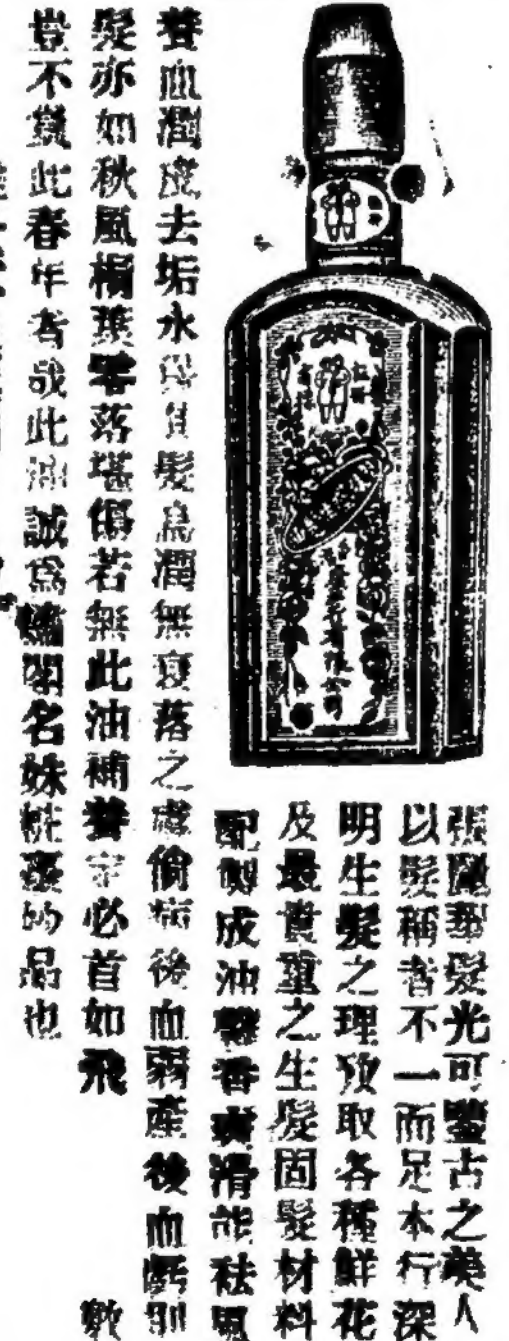 張麗華髮光可鑒古之美人
以髮稱者不一而足本行深
明生髮之理攷取各種鮮花
及最貴重之生髮固髮材料
配製成油馨香爽滑能祛風
養血潤 去垢永 其髮烏潤無衰落之 倘病後血弱產後血虧則
髮亦如秋風 葉零落堪 若無此油補養 必首如飛
豈不 此春年者哉此油誠為 閨名姝 的品也